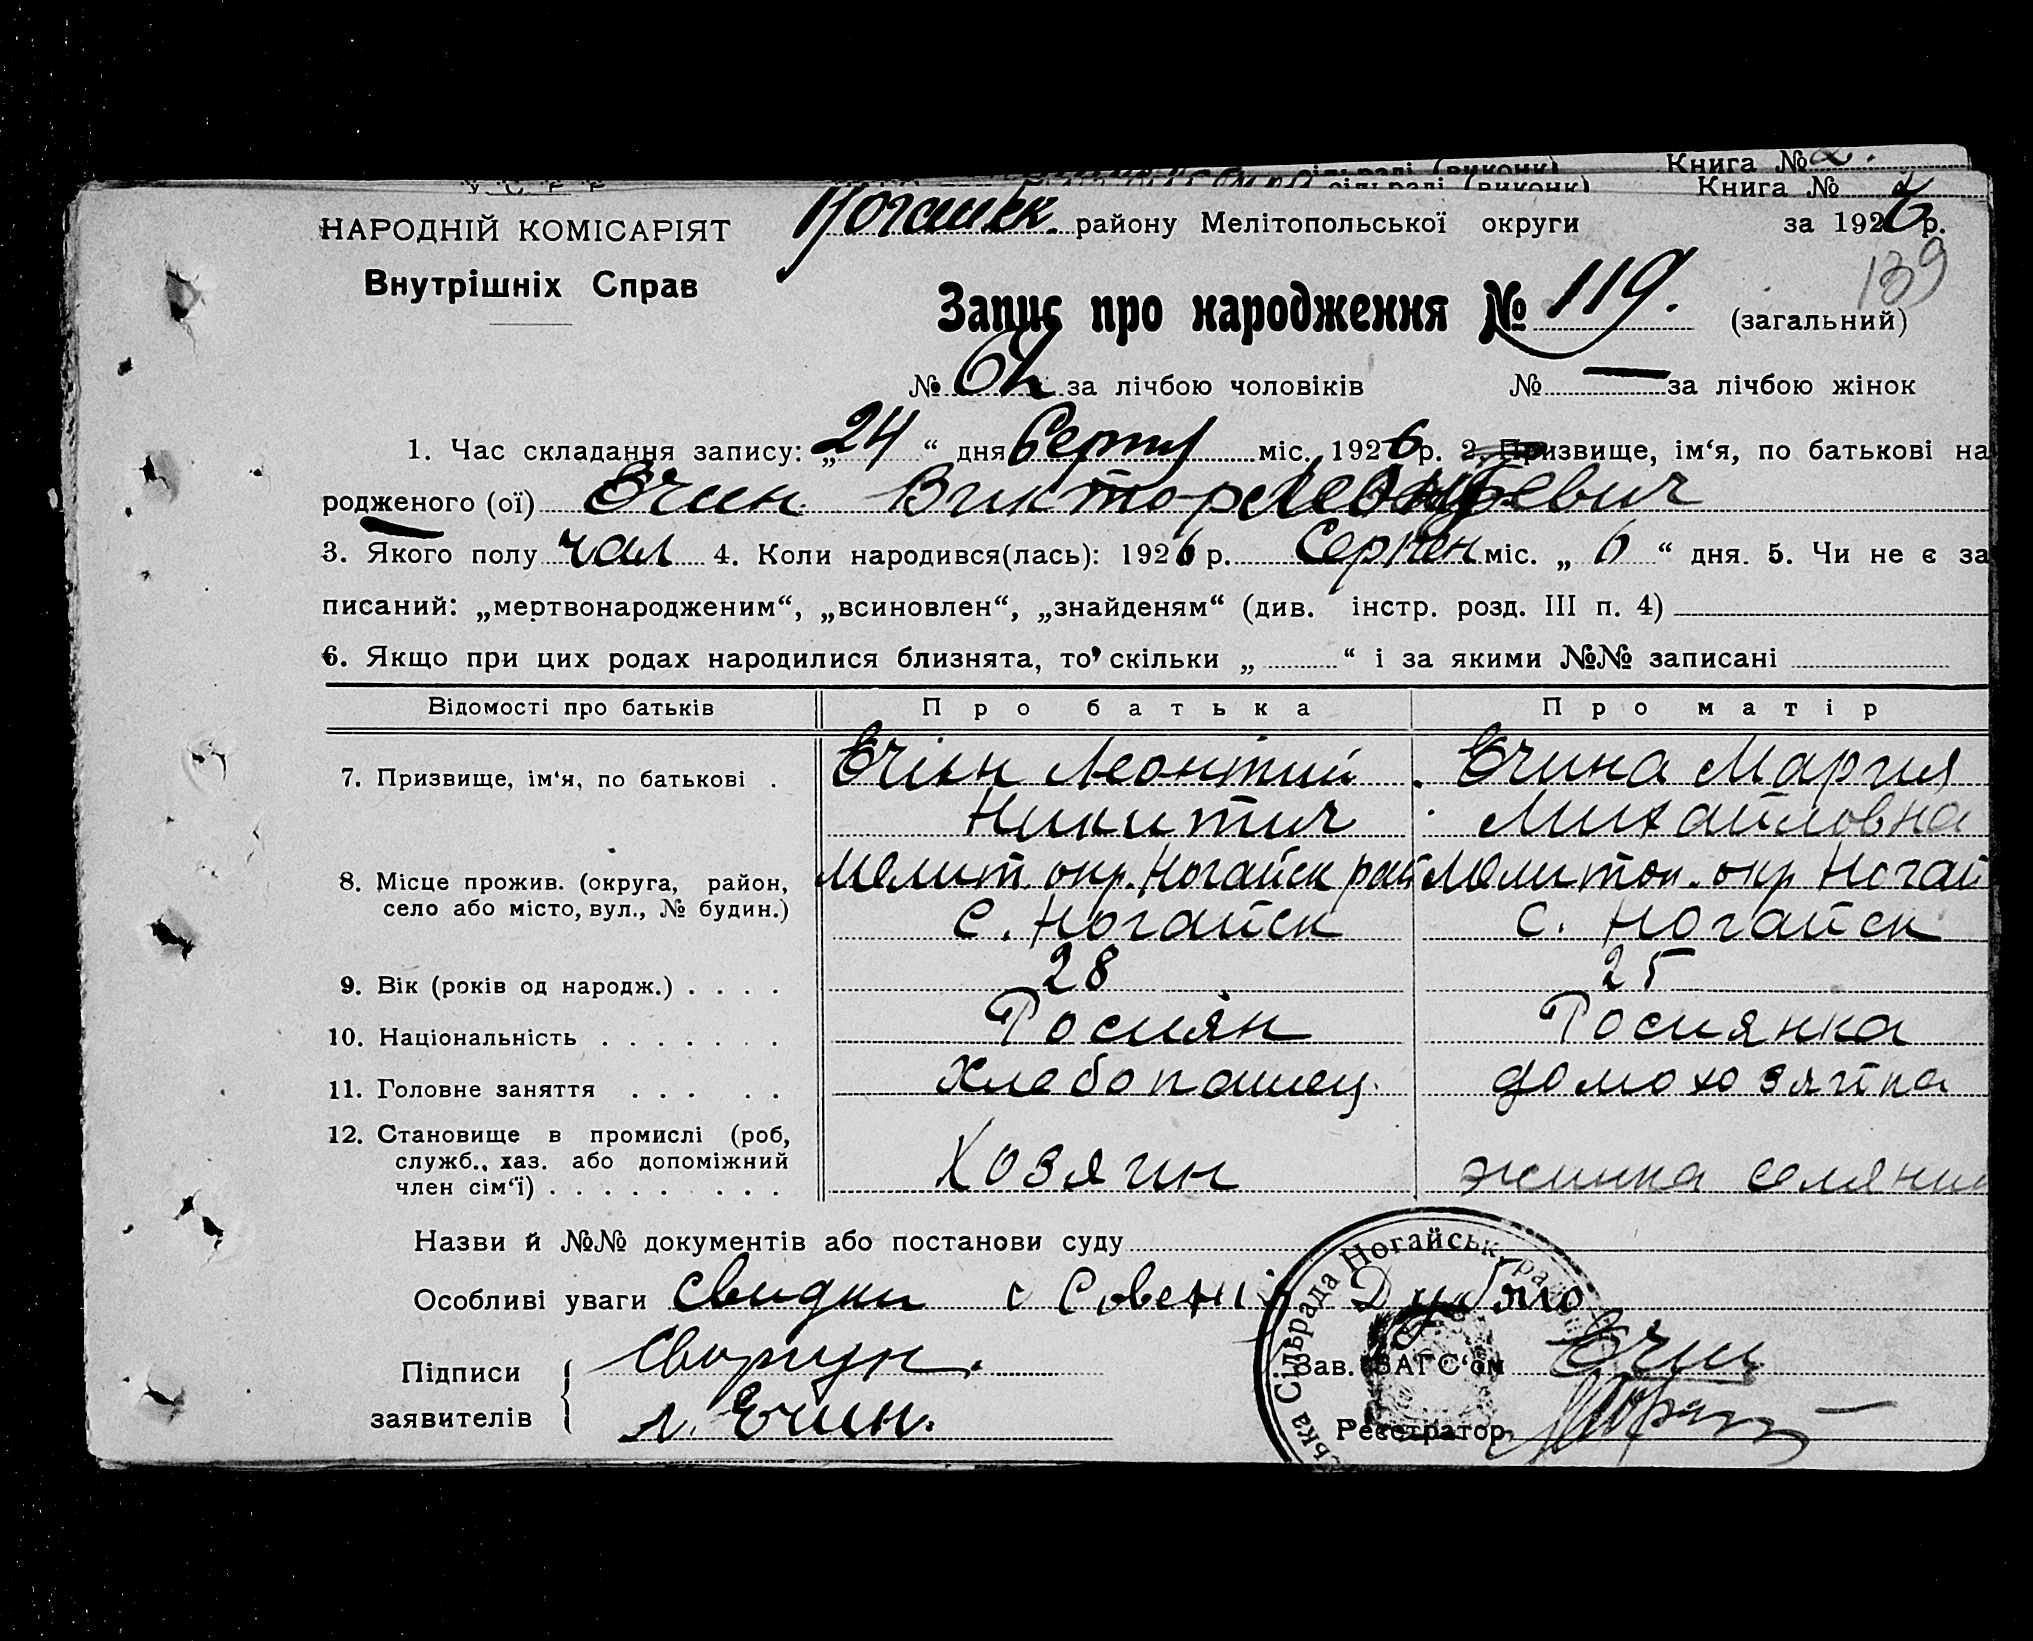 Книга № 2.
У С Р Р сільраді (виконк) Книга №
НАРОДНІЙ КОМІСАРІЯТ Ногайськ. району Мелітопольської округи за 1926 р.
139
Внутрішніх Справ
Запис про народження № 119. (загальний)
№ за лічбою чоловіків № — за лічбою жінок
1. Час складання запису: „24“ дня міс. 1926 р. 2. Призвище, ім‘я, по батькові на
родженого (ої) Ечин Виктор Леонтьевич
3. Якого полу чол 4. Коли народився(лась): 1926 р. Серпен міс. „6“ дня. 5. Чи не є за
писаний: „мертвонародженим“, „всиновлен“, „знайденям“ (див. інстр. розд. III п. 4)
6. Якщо при цих родах народилися близнята, то скільки „ “ і за якими №№ записані
Відомості про батьків Про батька Про матір
7. Призвище, ім‘я, по батькові . Ечін Леонтий Ечина Мария
Никитич Михайловна
8. Місце прожив. (округа, район, Мелит. окр. Ногайск рай Мелитоп. окр Ногай
село або місто, вул., № будин.) с. Ногайск с. Ногайск
9. Вік (років од народж.) . . . . 28 25
10. Національність . . . . . . . Росиян Росиянка
11. Головне заняття . . . . . Хлебопашец. домохозяйка
12. Становище в промислі (роб,
служб., хаз. або допоміжний Хозяин жинка селянин
член сім‘ї) . . . . . . . .
Назви й №№ документів або постанови суду
Особливі уваги Свидки
Підписи Зав. ЗАГС‘ом Ечин
заявителів л. Ечин. Реєстратор
ька Сільрада Ногайськ. рай